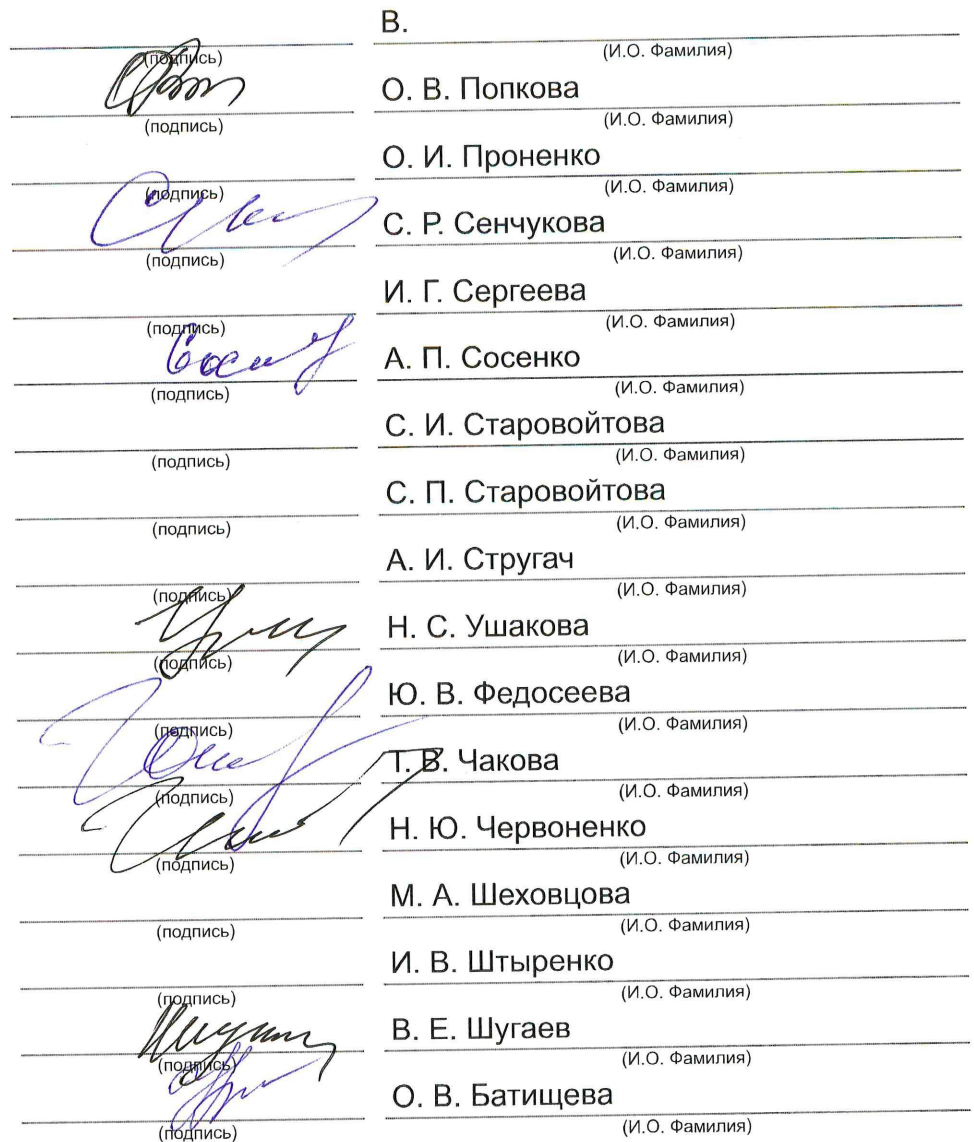 В.
(подпись) (И.О. Фамилия)
О. В. Попкова
(подпись) (И.О. Фамилия)
О. И. Проненко
(подпись) (И.О. Фамилия)
С. Р. Сенчукова
(подпись) (И.О. Фамилия)
И. Г. Сергеева
(подпись) (И.О. Фамилия)
А. П. Сосенко
(подпись) (И.О. Фамилия)
С. И. Старовойтова
(подпись) (И.О. Фамилия)
С. П. Старовойтова
(подпись) (И.О. Фамилия)
А. И. Стругач
(подпись) (И.О. Фамилия)
Н. С. Ушакова
(подпись) (И.О. Фамилия)
Ю. В. Федосеева
(подпись) (И.О. Фамилия)
Т. В. Чакова
(подпись) (И.О. Фамилия)
Н. Ю. Червоненко
(подпись) (И.О. Фамилия)
М. А. Шеховцова
(подпись) (И.О. Фамилия)
И. В. Штыренко
(подпись) (И.О. Фамилия)
В. Е. Шугаев
(подпись) (И.О. Фамилия)
О. В. Батищева
(подпись) (И.О. Фамилия)